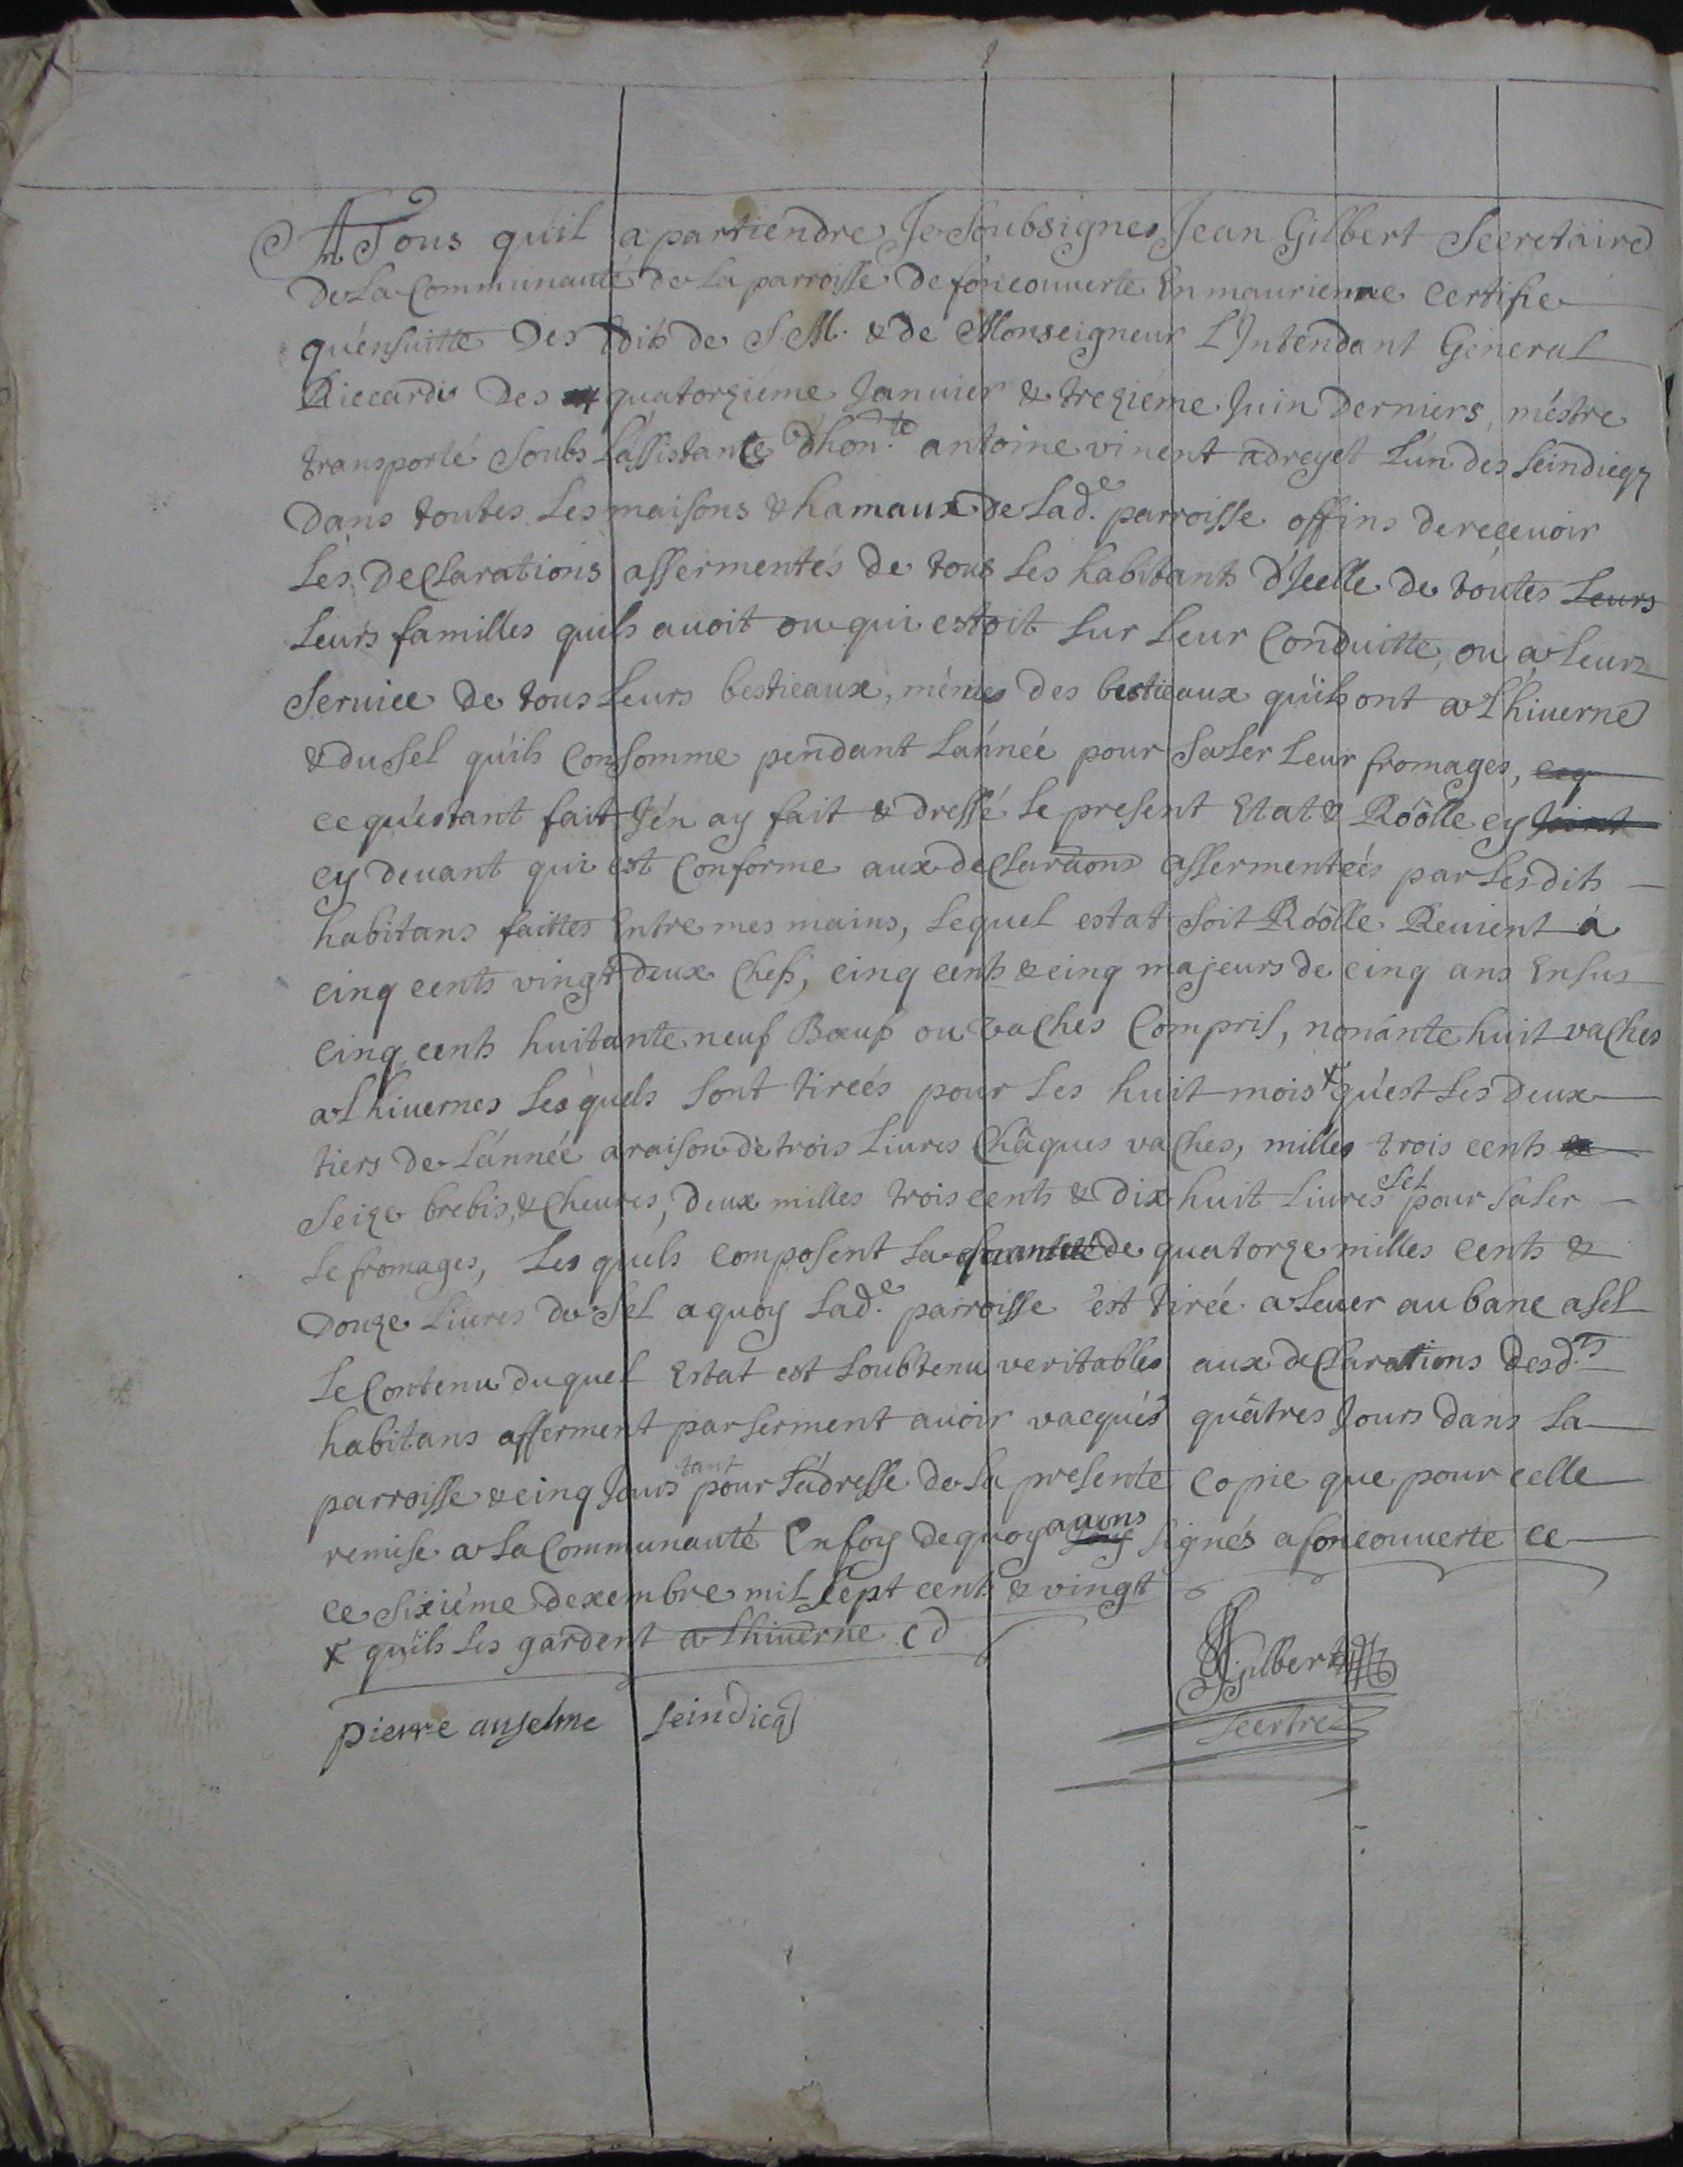 A Tous quil apartiendre Je Soubsignes Jean Gilbert Secretaire
De La Communauté de La parroisse de foncouuerte En maurienne Certifie
qu'ensuitte Des Edits de S.M. & de Monseigneur L'Intendant General
Riccardi Des quatorziéme Januier & treziéme Juin Derniers, méstre
transporté Soubs L'assistance D'hon.te antoine vinent adreyet L'un des Seindicqz
Dans toutes Les maisons & hamaux de Lad.e parroisse affins de recevoir
Les Declarations assermentés de tous Les habitants d'Icelle de toutes Leurs
Leurs familles quils auoit ou qui estoit Sur Leur Conduitte, ou a Leurs
Seruice de tous Leurs bestieaux, mémes Des bestieaux qu'ils ont a L'hiuerne
& du Sel qu'ils Consomme pendant L'année pour Saler Leur fromages, ceq
ce qu'estant fait J'en ay fait & dressé Le present Etat & Róölle cy Joint
cy deuant qui est Conforme aux declaraons assermenteés par Lesdits
habitans faittes Entre mes mains, Lequel estat Soit Róölle Reuient á
cinq cents vingt deux Chefs, cinq cents & cinq majeurs de cinq ans Ensus
cinq cents huitante neuf Bœufs ou vaches Compris, nonante huit vaches
a L'hiuernes Lesquels Sont tireés pour Les huit mois x qu'est Les Deux
tiers de L'année a raison de trois Liures Chaques vaches, milles trois cents &
Seize brebis, & Cheures, Deux milles trois cents & Dix huit Liures Sel pour Saler
Le fromages, Les quels composent La quantité de quatorze milles cents &
Douze Liures de Sel a quoy Lad.e parroisse est tirée a Leuer au banc a Sel
Le Contenu duquel Estat est Soubtenu veritables aux declarations Desd.ts
habitans afferment par Serment auoir vacqués quatres Jours dans La
parroisse & cinq Jours tant pour L'adresse de La presente Copie que pour celle
remise a La Communauté En foy de quoy auons Signés a foncouuerte ce
ce Sixiéme dexembre mil Sept cents & vingt
x qu'ils Les gardent a L'hiuerne
Gilbert
pierre anselme Seindicq
Secrtre